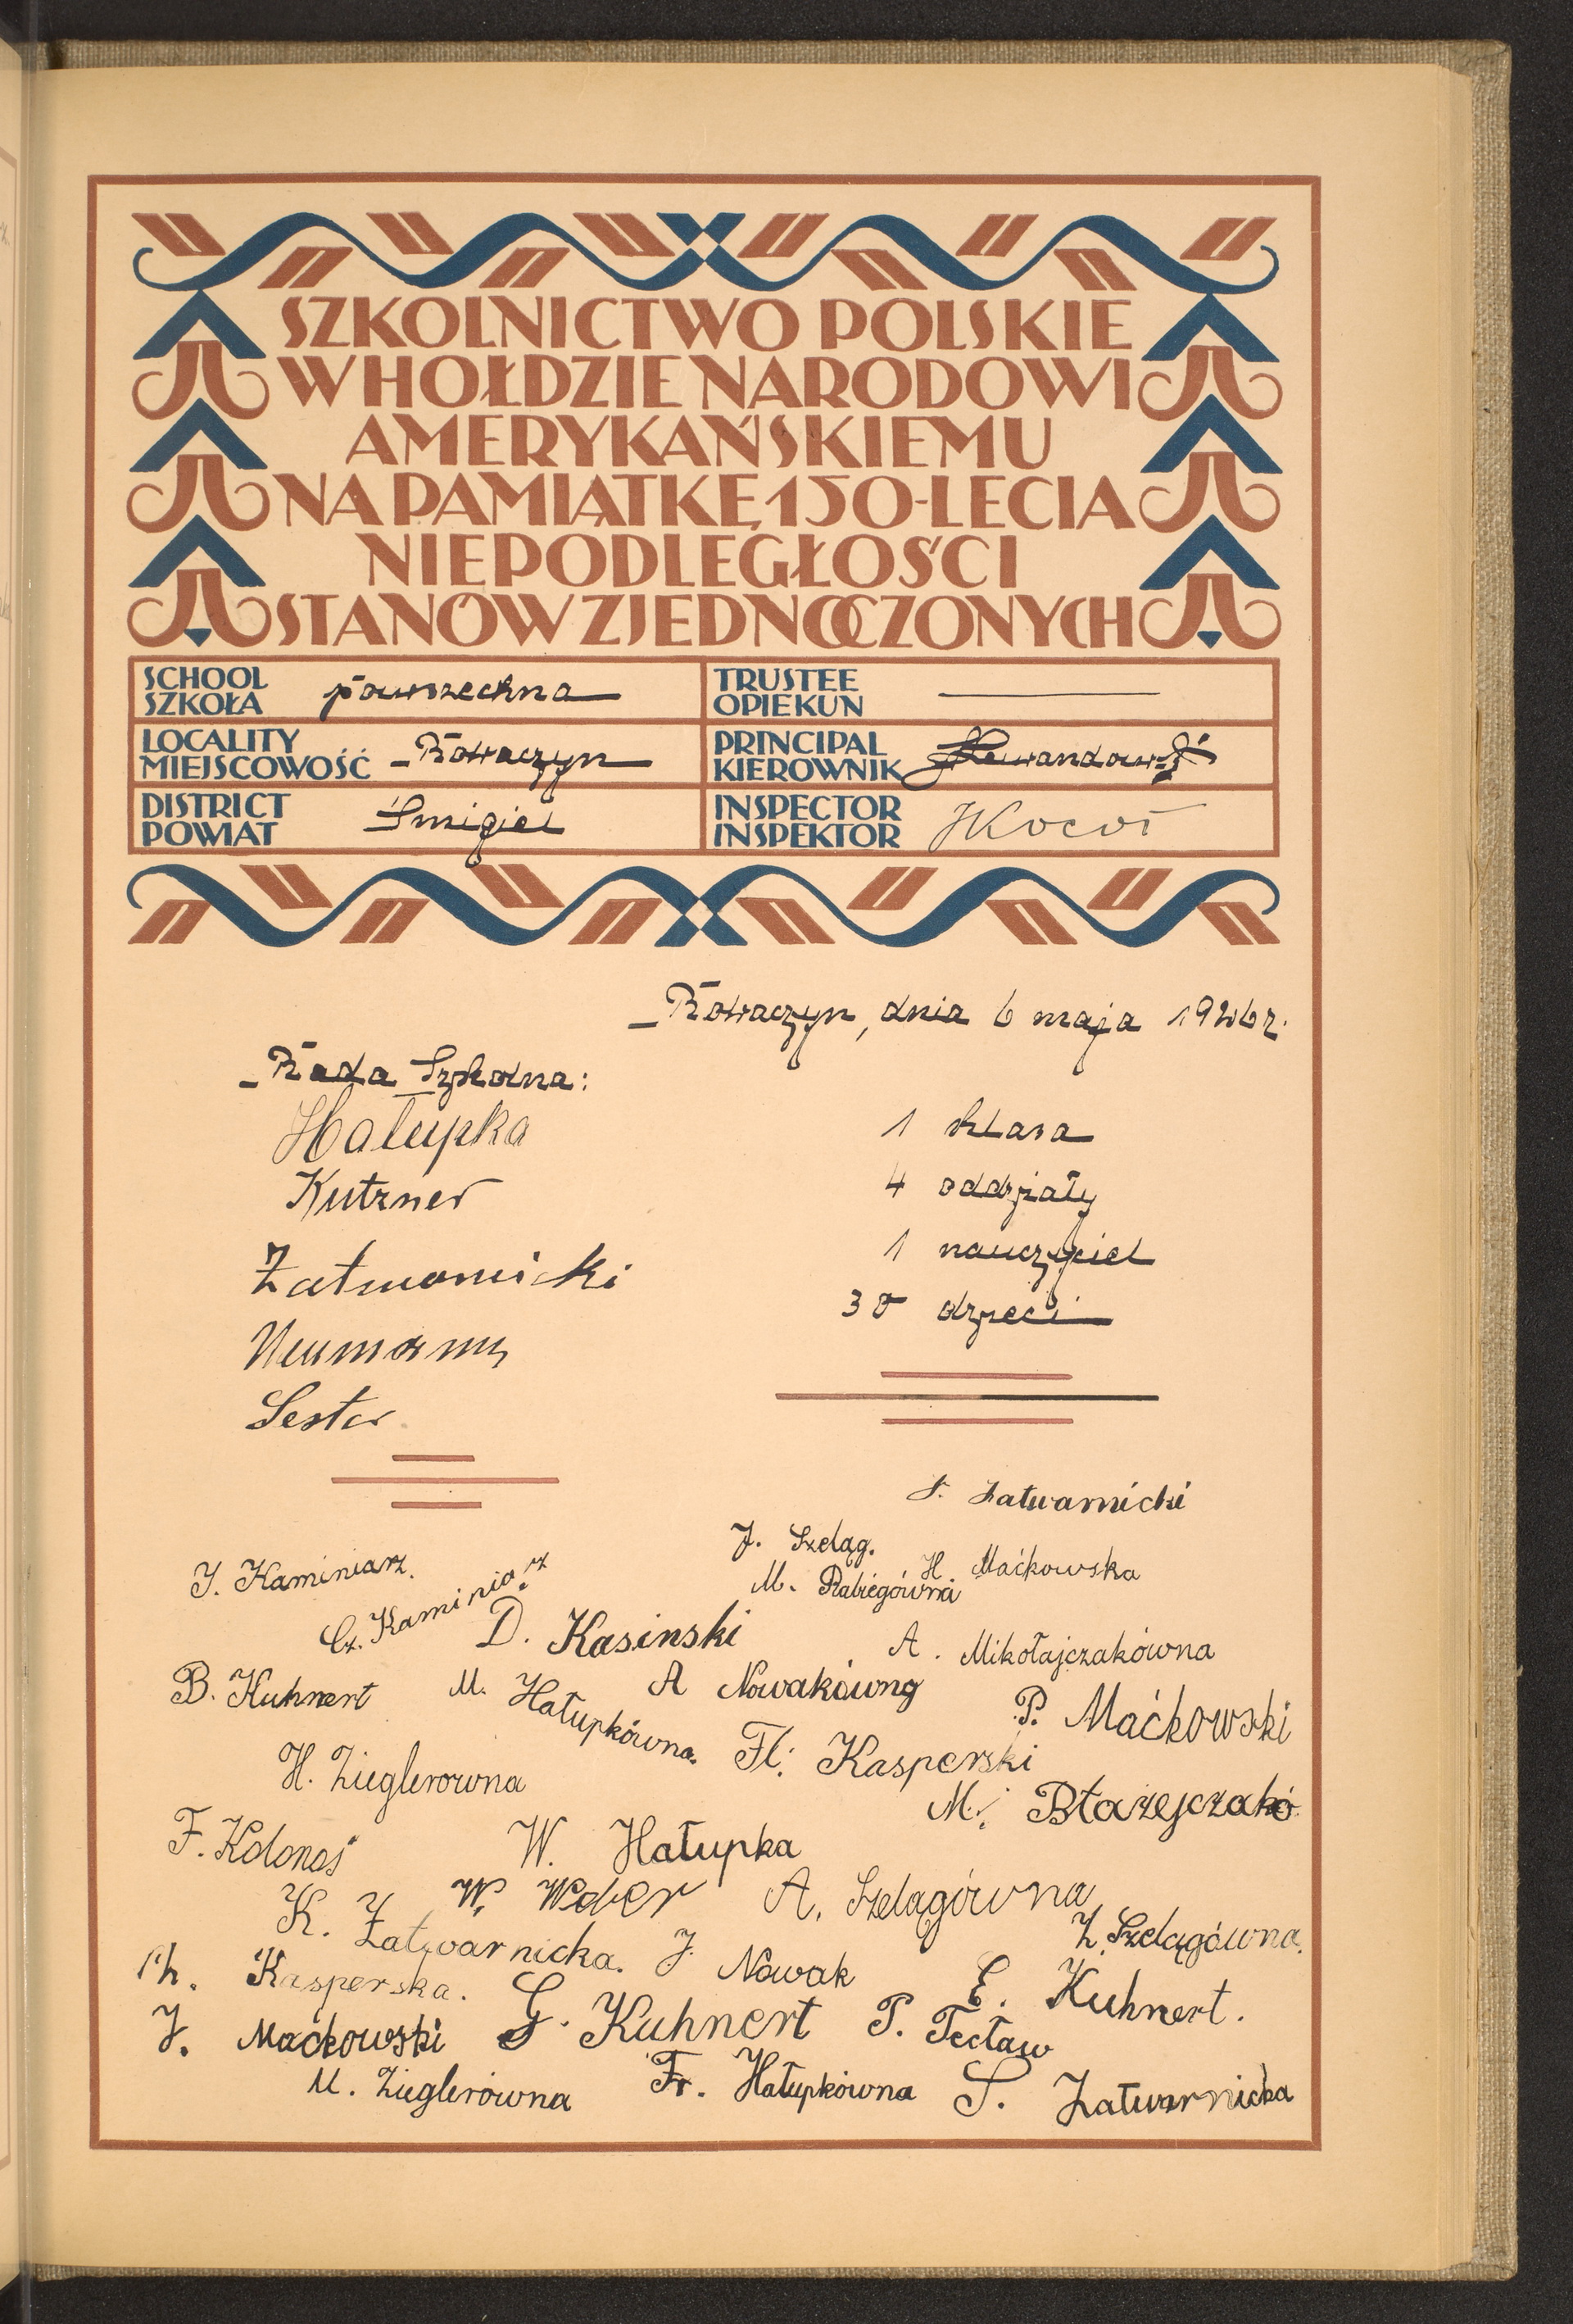 SZKOLNICTWO POLSKIE
W HOŁDZIE NARODOWI
AMERYKAŃSKIEMU
NA PAMIĄTKĘ 150-LECIA
NIEPODLEGŁOŚCI
STANÓW ZJEDNOCZONYCH
SCHOOL
SZKOŁA powszechna
TRUSTEE
OPIEKUN
LOCALITY
MIEJSCOWOŚĆ Robaczyn
PRINCIPAL
KIEROWNIK Lewandowski
DISTRICT
POWIAT Śmigiel
INSPECTOR
INSPEKTOR
Robaczyn, dnia 6 maja 1926 r.
Rada Szkolna:
Hałupka
Kutzner
Zatwarnicki
Neumann
Sester
1 klasa
4 oddziały
1 nauczyciel
30 dzieci
S. Zatwarnicki
J. Szeląg.
J. Kaminiarz.
H. Maćkowska
M. Rabiegówna
Cz. Kaminiarz
D. Kasinski
A. Mikołajczakówna
B. Kuhnert
M. Hałupkówna.
A Nowakówna
P. Maćkowski
Fl. Kasperski
H. Zieglerowna
M. Błażejczakó
F. Kolonoś
W. Hałupka
W. Weber
A. Szelągówna
K. Zatwarnicka.
J. Nowak
Z. Szelągówna.
Ch. Kasperska.
E. Kuhnert.
J. Maćkowski
G. Kuhnert
P. Tecław
M. Zieglerówna
Fr. Hałupkówna
S. Zatwarnicka